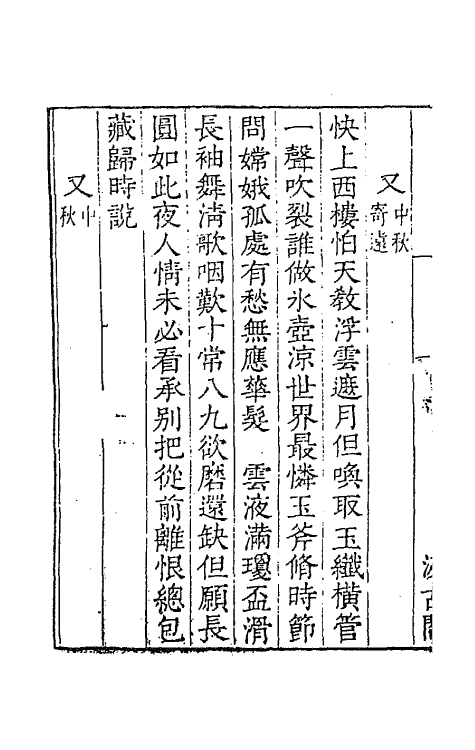 又中秋寄遠
快上西樓怕天教浮雲遮月但喚取玉纖橫管
一聲吹裂誰做氷壺涼世界最憐玉斧脩時節
問嫦娥孤處有愁無應華髮　雲液滿瓊盃滑
長袖舞淸歌咽歎十常八九欲磨還缺但願長
圓如此夜人情未必看承別把從前離恨總包
藏歸時說
又中秋